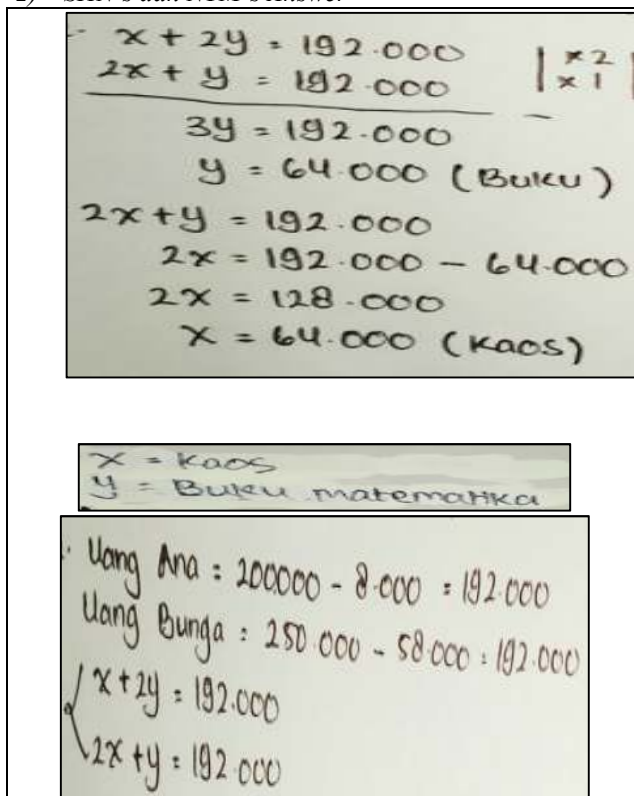 x + 2y = 192.000 | x2 |
2x + y = 192.000 | x1 |
3y = 192.000
y = 64.000 (Buku)
2x + y = 192.000
2x = 192.000 - 64.000
2x = 128.000
x = 64.000 (Kaos)
x = Kaos
y = Buku matematika
Uang Ana : 200000 - 8.000 : 192.000
Uang Bunga : 250.000 - 58.000 : 192.000
x + 2y : 192.000
2x + y : 192.000